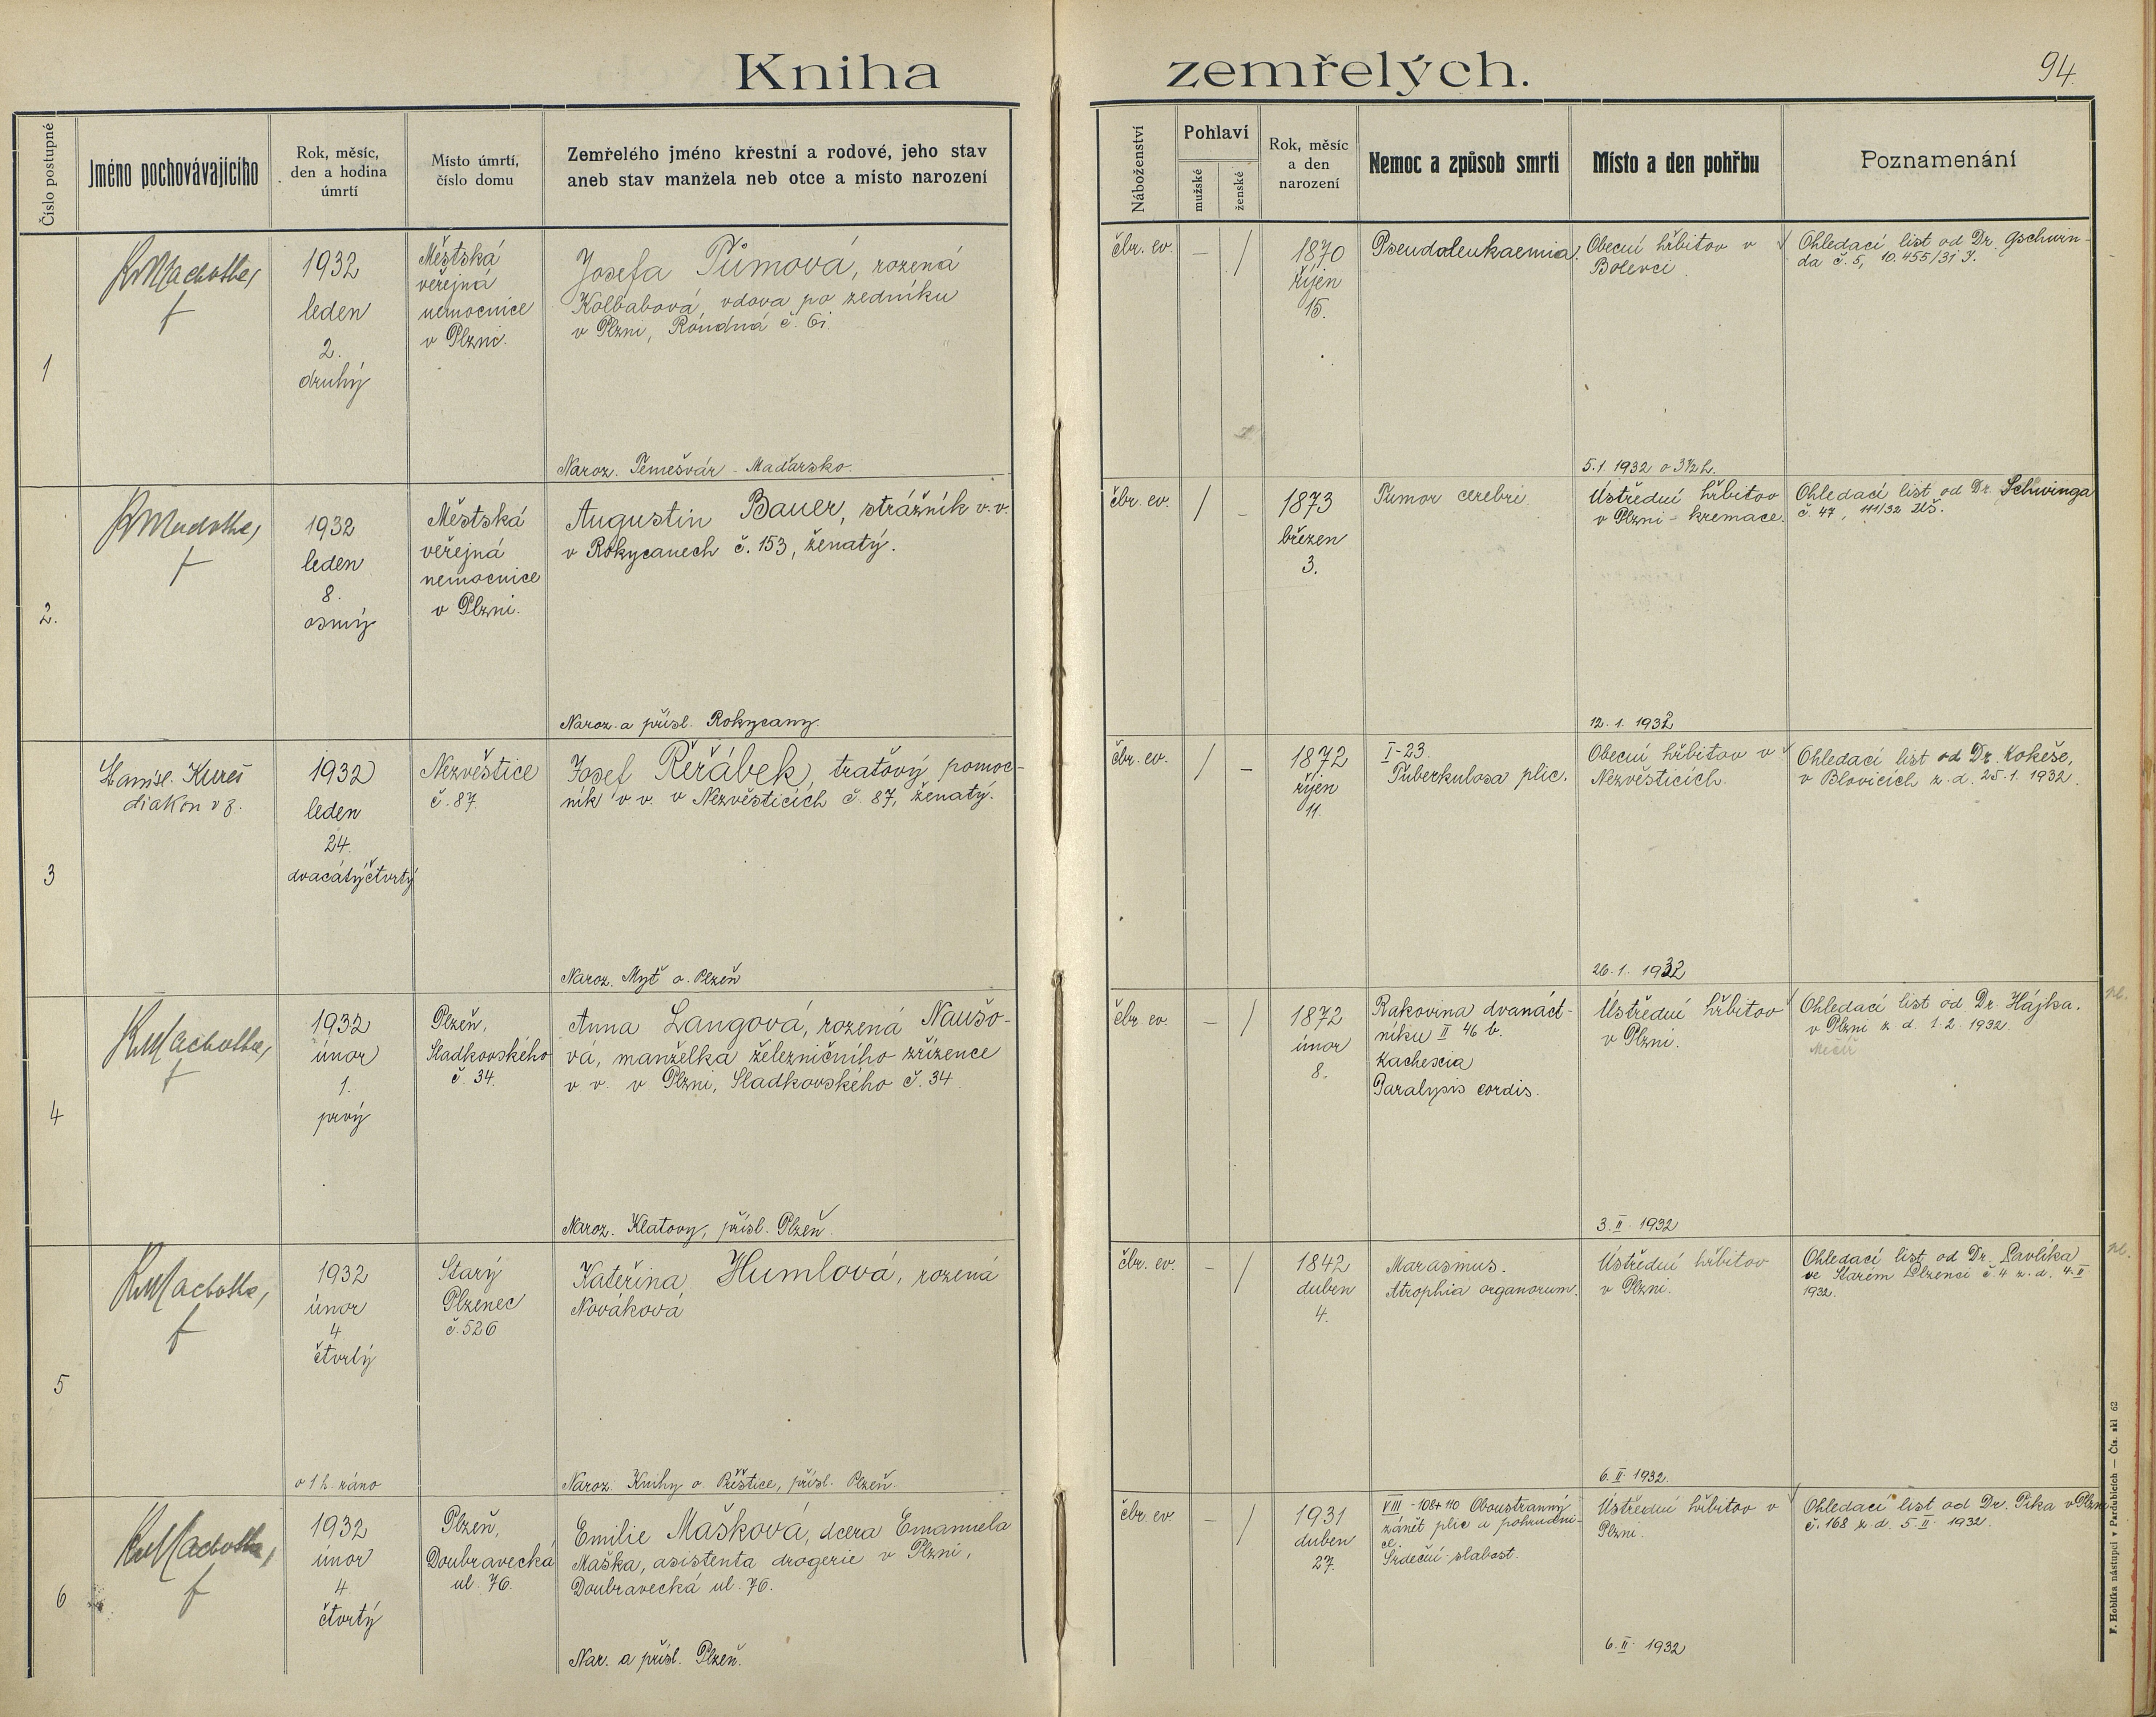 Kniha zemřelých.
94.
Číslo postupné
Jméno pochovávajícího
Rok, měsíc,
den a hodina
úmrtí
Místo úmrtí,
číslo domu
Zemřelého jméno křestní a rodové, jeho stav
aneb stav manžela neb otce a místo narození
Náboženství
Pohlaví
mužské
ženské
Rok, měsíc
a den
narození
Nemoc a způsob smrti
Místo a den pohřbu
Poznamenání
1
1932
leden
2.
druhý
Městská
veřejná
nemocnice
v Plzni.
Josefa Tůmová, rozená
Kolbabová, vdova po zedníku
v Plzni, Roudná č. 61.
Naroz. Temešvár - Maďarsko.
čbr. ev.
–
/
1870
říjen
15.
Pseudoleukaemia.
Obecní hřbitov v
Bolevci.
5.1.1932 o 3½ h.
Ohledací list od Dr. Gschwin-
da č. 5, 10.455/31 I.
2.
1932
leden
8.
osmý
Městská
veřejná
nemocnice
v Plzni.
Augustin Bauer, strážník v.v.
v Rokycanech č. 153, ženatý.
Naroz. a přísl. Rokycany.
čbr. ev.
/
–
1873
březen
3.
Tumor cerebri.
Ústřední hřbitov
v Plzni - kremace.
12. 1. 1932
Ohledací list od Dr. Schwinga
č. 47, 111/32
3
Stanisl. Kureš
diakon v z.
1932
leden
24.
dvacátýčtvrtý
Nezvěstice
č. 87.
Josef Řeřábek, traťový pomoc-
ník v v. v Nezvěsticích č. 87, ženatý.
Naroz. Myť o. Plzeň
čbr. ev.
/
–
1872
říjen
11.
I-23.
Tuberkulosa plic.
Obecní hřbitov v
Nezvěsticích.
26. 1. 1932
Ohledací list od Dr. Kokeše,
v Blovicích z. d. 25. 1. 1932.
4
1932
únor
1.
prvý
Plzeň,
Sladkovského
č. 34.
Anna Langová, rozená Naušo-
vá, manželka železničního zřízence
v v. v Plzni, Sladkovského č. 34.
Naroz. Klatovy, přísl. Plzeň.
čbr ev.
–
/
1872
únor
8.
Rakovina dvanáct-
níku II 46 b.
Kachexia
Paralysis cordis.
Ústřední hřbitov
v Plzni.
3. II. 1932
Ohledací list od Dr. Hájka.
v Plzni z d. 1. 2. 1932.
5
1932
únor
4
čtvrtý
o 1 h. ráno
Starý
Plzenec
č. 526
Kateřina Humlová, rozená
Nováková
Naroz. Knihy o. Přeštice, přísl. Plzeň.
čbr. ev.
–
/
1842
duben
4.
Marasmus.
Atrophia organorum.
Ústřední hřbitov
v Plzni.
6. II. 1932.
Ohledací list od Dr. Pavlíka
ve Starém Plzenci č. 4 z. d. 4. II
1932.
6
1932
únor
4.
čtvrtý
Plzeň,
Doubravecká
ul. 76.
Emilie Mašková, dcera Emanuela
Maška, asistenta drogerie v Plzni,
Doubravecká ul. 76.
Nar. a přísl. Plzeň.
čbr. ev
–
/
1931
duben
27.
VIII - 108+110 Oboustranný
zánět plic a pohrudni-
ce.
Srdeční slabost.
Ústřední hřbitov v
Plzni.
6. II. 1932
Ohledací list od Dr. Pika v Plzni
č. 168 z. d. 5. II. 1932.
F. Hoblíka nástupci v Pardubicích — Čís. skl 62